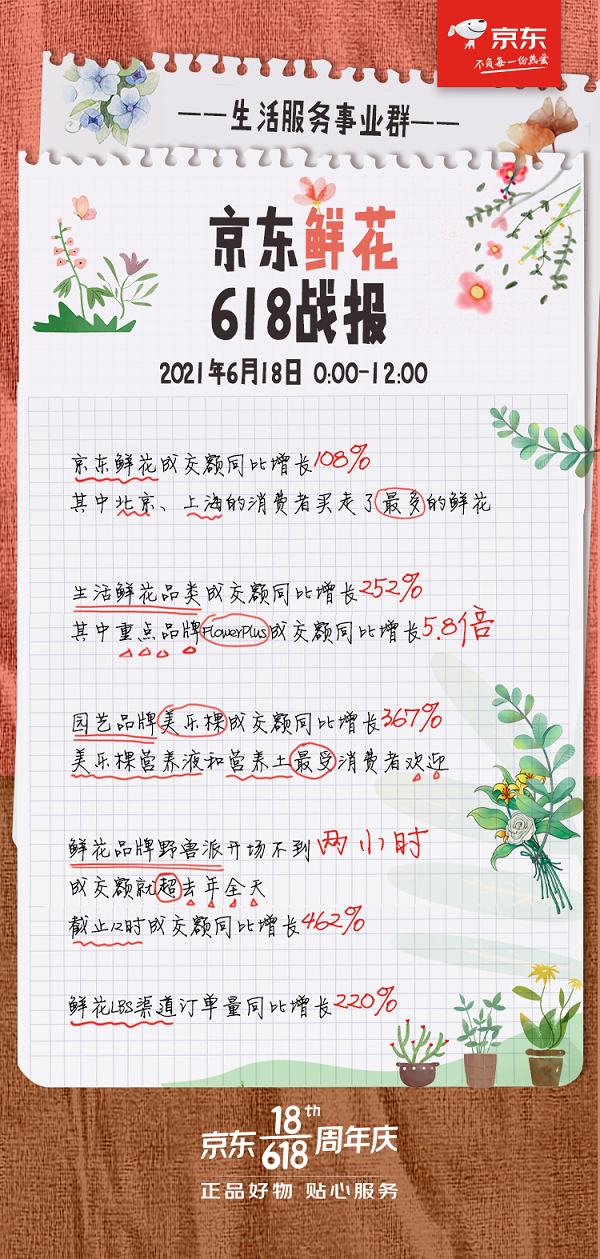 京东
不负每一份热爱
——生活服务事业群——
京东鲜花
618战报
2021年6月18日 0:00-12:00
京东鲜花成交额同比增长108%
其中北京、上海的消费者买走了最多的鲜花
生活鲜花品类成交额同比增长252%
其中重点品牌FlowerPlus成交额同比增长5.8倍
园艺品牌美乐棵成交额同比增长367%
美乐棵营养液和营养土最受消费者欢迎
鲜花品牌野兽派开场不到两小时
成交额就超去年全天
截止12时成交额同比增长462%
鲜花LBS渠道订单量同比增长220%
京东18th618周年庆
正品好物 贴心服务